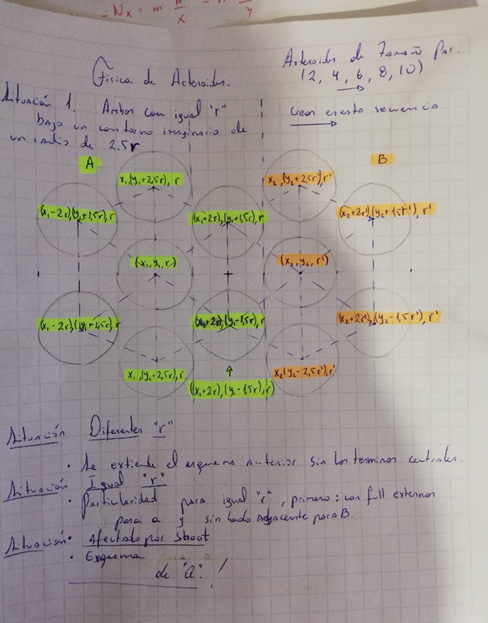 -Nx = m
x
y
Física de Asteroides.
Asteroides de Tamaño Par.
(2, 4, 6, 8, 10)
Situación 1. Ambos con igual "r"
bajo un contorno imaginario de
un radio de 2.5r
Usar en esto secuencia
A
B
x1,(y1+2,5r),r
x2,(y2+2,5r'),r'
(x1-2r),(y1+1,5r),r
(x1+2r),(y1+1,5r),r
(x2+2r'),(y2+1,5r'),r'
(x1,y1,r)
(x2,y2,r')
(x1-2r),(y1-1,5r),r
(x1+2r),(y1-1,5r),r
(x2+2r'),(y2-1,5r'),r'
x1,(y1-2,5r),r
x2(y2-2,5r'),r'
(x1+2r),(y1-1,5r),r
Situación Diferentes "r"
• Se extiende el esquema anterior sin los terminos centrales.
Situación Igual "r"
• Particularidad para igual "r", primero: con full externos
para a y sin lado adyacente para B.
Situación • Afectado por shoot
• Esquema
de "a".!